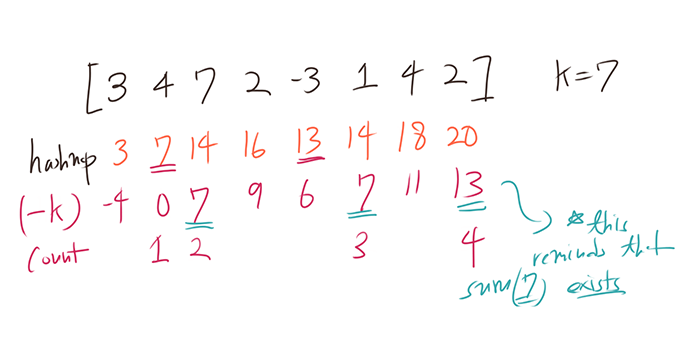 [3 4 7 2 -3 1 4 2] k=7
hashmap 3 7 14 16 13 14 18 20
(-k) -4 0 7 9 6 7 11 13
Count 1 2 3 4
*this
reminds that
sum(7) exists